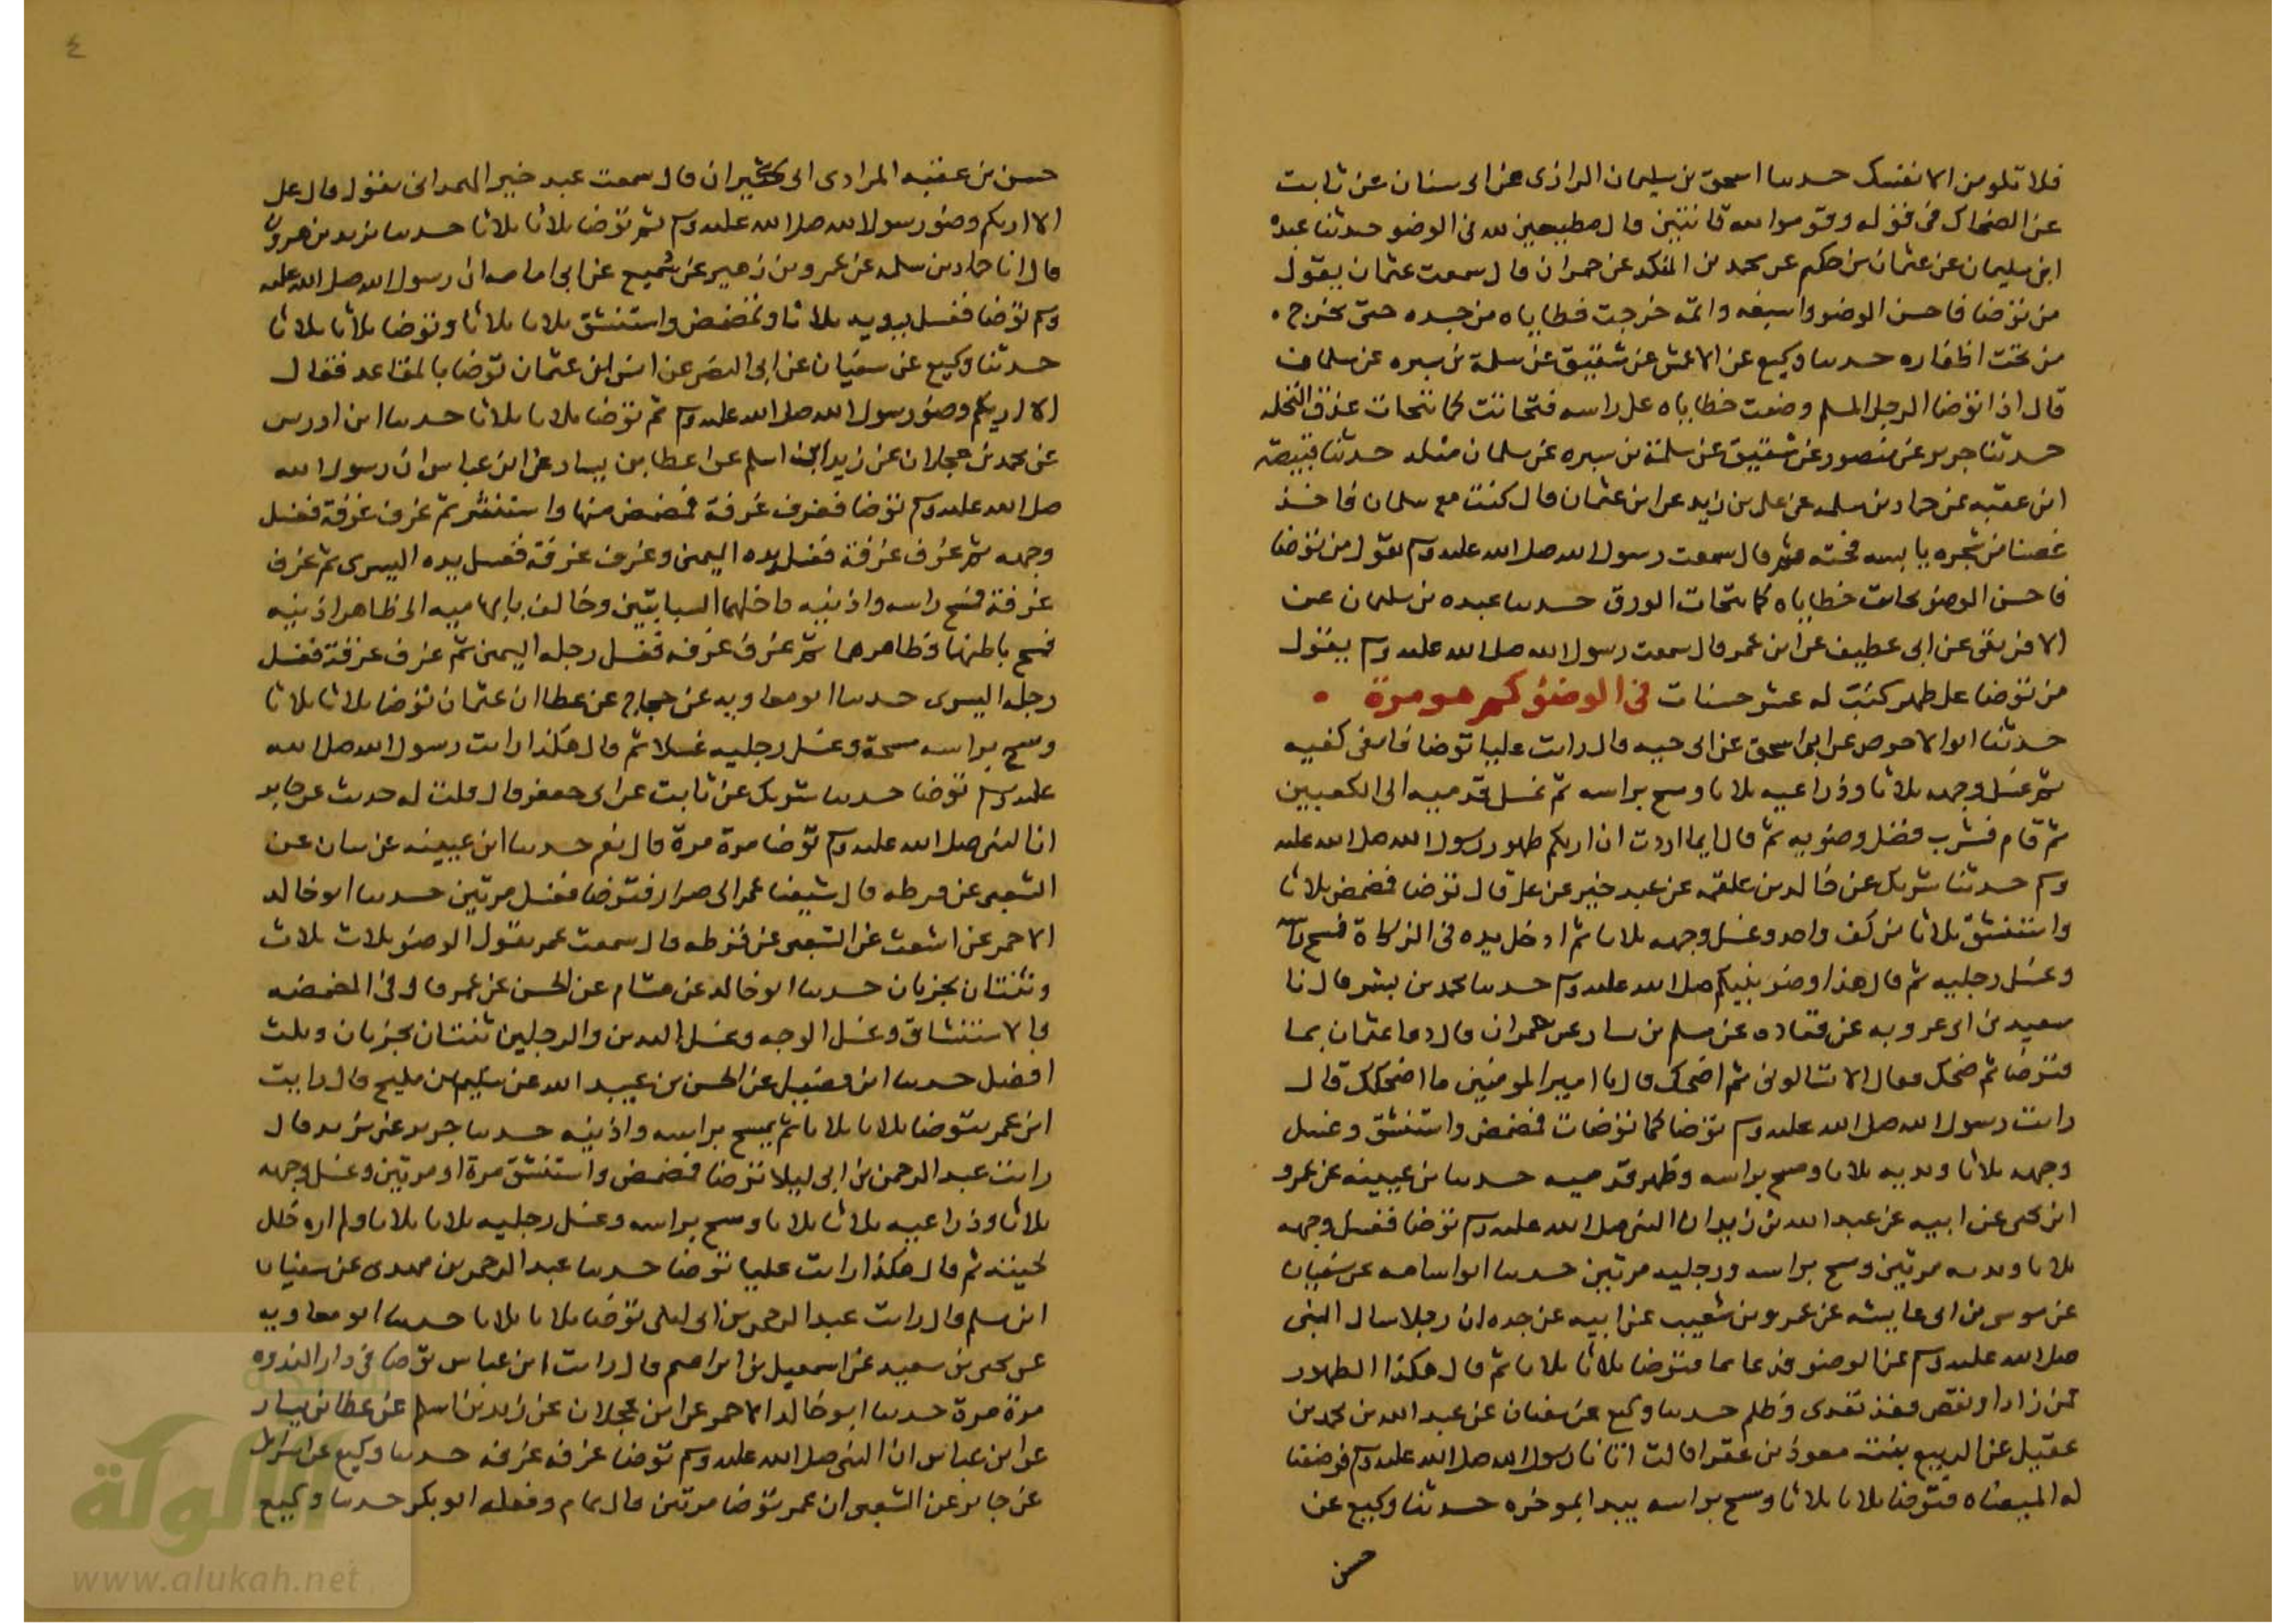 فلا تلومن الا نفسك حدثنا اسحق بن سليمان الرازى عن ابى سنان عن ثابت
عن الضحاك فى قوله وقوموا لله قانتين قال مطيعين لله فى الوضو حدثنا عبدة
ابن سليمان عن عثمان بن حكيم عن محمد بن المنكدر عن حمران قال سمعت عثمان يقول
من توضا فاحسن الوضو واسبغه واتمه خرجت خطاياه من جسده حتى تخرج
من تحت اظفاره حدثنا وكيع عن الاعمش عن شقيق عن سلمة بن سبره عن سلمان
قال اذا توضا الرجل المسلم وضعت خطاياه على راسه فتحاتت كما تتحات عذق النخله
حدثنا جرير عن منصور عن شقيق عن سلمة بن سبره عن سلمان مثله حدثنا قبيصة
ابن عقبه عن حماد بن سلمه عن على بن زيد عن ابن عثمان قال كنت مع سلمان فاخذ
غصنا من شجره يابسه فحته ثم قال سمعت رسول الله صلى الله عليه وسلم يقول من توضا
فاحسن الوضو تحاتت خطاياه كما تتحات الورق حدثنا عبده بن سليمان عن
الافريقى عن ابى عطيف عن ابن عمر قال سمعت رسول الله صلى الله عليه وسلم يقول
من توضا على طهر كتبت له عشر حسنات فى الوضؤ كم هو مرة
حدثنا ابو الاحوص عن ابى اسحق عن ابى حيه قال رايت عليا توضا فانقى كفيه
ثم غسل وجهه ثلاثا وذراعيه ثلاثا ومسح براسه ثم غسل قدميه الى الكعبين
ثم قام فشرب فضل وضويه ثم قال ايما اردت ان اريكم طهور رسول الله صلى الله عليه
وسلم حدثنا شريك عن خالد بن علقمه عن عبد خير عن على قال توضا فمضمض ثلاثا
واستنشق ثلاثا من كف واحد وغسل وجهه ثلاثا ثم ادخل يده فى الركاة فمسح راسه
وغسل رجليه ثم قال هذا وضو نبيكم صلى الله عليه وسلم حدثنا محمد بن بشر قال نا
سعيد بن ابى عروبه عن قتاده عن مسلم بن يسار عن حمران قال دعا عثمان بما
فتوضا ثم ضحك فقال الا تسالونى مم اضحك قال يا امير المومنين ما اضحكك قال
رايت رسول الله صلى الله عليه وسلم توضا كما توضات فمضمض واستنشق وغسل
وجهه ثلاثا ويديه ثلاثا ومسح براسه وظهر قدميه حدثنا بن عيينه عن عمرو
ابن يحى عن ابيه عن عبد الله بن زيد ان النبى صلى الله عليه وسلم توضا فغسل وجهه
ثلاثا ويديه مرتين ومسح براسه ورجليه مرتين حدثنا ابو اسامه عن سفيان
عن موسى بن ابى عايشه عن عمرو بن شعيب عن ابيه عن جده ان رجلا سال النبى
صلى الله عليه وسلم عن الوضو فدعا بما فتوضا ثلاثا ثلاثا ثم قال هكذا الطهور
فمن زاد او نقص فقد تعدى وظلم حدثنا وكيع عن سفيان عن عبد الله بن محمد بن
عقيل عن الربيع بنت معوذ بن عفرا قالت اتانا رسول الله صلى الله عليه وسلم فوضعنا
له الميضاه فتوضا ثلاثا ثلاثا ومسح براسه يبدا بموخره حدثنا وكيع عن
حسن
٤
حسن بن عقبه المرادى ابى كثيران قال سمعت عبد خير الهمدانى يقول قال على
الا اريكم وضو رسول الله صلى الله عليه وسلم ثم توضا ثلاثا ثلاثا حدثنا يزيد بن هرون
قال انا حماد بن سلمه عن عمرو بن زهير عن شميع عن ابى امامه ان رسول الله صلى الله عليه
وسلم توضا فغسل يديه ثلاثا وتمضمض واستنشق ثلاثا ثلاثا وتوضا ثلاثا ثلاثا
حدثنا وكيع عن سفيان عن ابى النضر عن انس ان عثمان توضا بالمقاعد فقال
الا اريكم وضو رسول الله صلى الله عليه وسلم ثم توضا ثلاثا ثلاثا حدثنا ابن ادريس
عن محمد بن عجلان عن زيد ابن اسلم عن عطا بن يسار عن ابن عباس ان رسول الله
صلى الله عليه وسلم توضا فغرف غرفة فمضمض منها واستنثر ثم غرف غرفة فغسل
وجهه ثم غرف غرفة فغسل يده اليمنى وغرف غرفة فغسل يده اليسرى ثم غرف
غرفة فمسح راسه واذنيه داخلهما السبابتين وخالف بابهاميه الى ظاهر اذنيه
فمسح باطنهما وظاهرهما ثم غرف غرفه فغسل رجله اليمنى ثم غرف غرفة فغسل
رجله اليسرى حدثنا ابو معاويه عن حجاج عن عطا ان عثمان توضا ثلاثا ثلاثا
ومسح براسه مسحة وغسل رجليه غسلا ثم قال هكذا رايت رسول الله صلى الله
عليه وسلم توضا حدثنا شريك عن ثابت عن ابى جعفر قال قلت له حدثت عن جابر
ان النبى صلى الله عليه وسلم توضا مرة مرة قال نعم حدثنا ابن عيينه عن بيان عن
الشعبى عن قرظه قال شيعنا عمر الى صرار فتوضا فغسل مرتين حدثنا ابو خالد
الاحمر عن اشعث عن الشعبى عن قرظه قال سمعت عمر يقول الوضو ثلاث ثلاث
وثنتان تجزيان حدثنا ابو خالد عن هشام عن الحسن عن عمر قال فى المضمضه
والاستنشاق وغسل الوجه وغسل اليدين والرجلين ثنتان تجزيان وثلث
افضل حدثنا ابن فضيل عن الحسن بن عبيد الله عن مسلم بن صبيح قال رايت
ابن عمر يتوضا ثلاثا ثلاثا ثم يمسح براسه واذنيه حدثنا جرير عن يزيد قال
رايت عبد الرحمن بن ابى ليلا توضا فمضمض واستنشق مرة او مرتين وغسل وجهه
ثلاثا وذراعيه ثلاثا ثلاثا ومسح براسه وغسل رجليه ثلاثا ثلاثا ولم اره خلل
لحيته ثم قال هكذا رايت عليا توضا حدثنا عبد الرحمن بن مهدى عن سفيان
ابن مسلم قال رايت عبد الرحمن بن ابى ليلى توضا ثلاثا ثلاثا حدثنا ابو معاويه
عن يحى بن سعيد عن اسمعيل بن ابراهيم قال رايت ابن عباس توضا فى دار الندوه
مرة مرة حدثنا ابو خالد الاحمر عن ابن عجلان عن زيد بن اسلم عن عطا بن يسار
عن ابن عباس ان النبى صلى الله عليه وسلم توضا غرفه غرفه حدثنا وكيع عن اسرايل
عن جابر عن الشعبى ان عمر توضا مرتين قال تمام وفعله ابو بكر حدثنا وكيع
شبكة
الألوكة
www.alukah.net